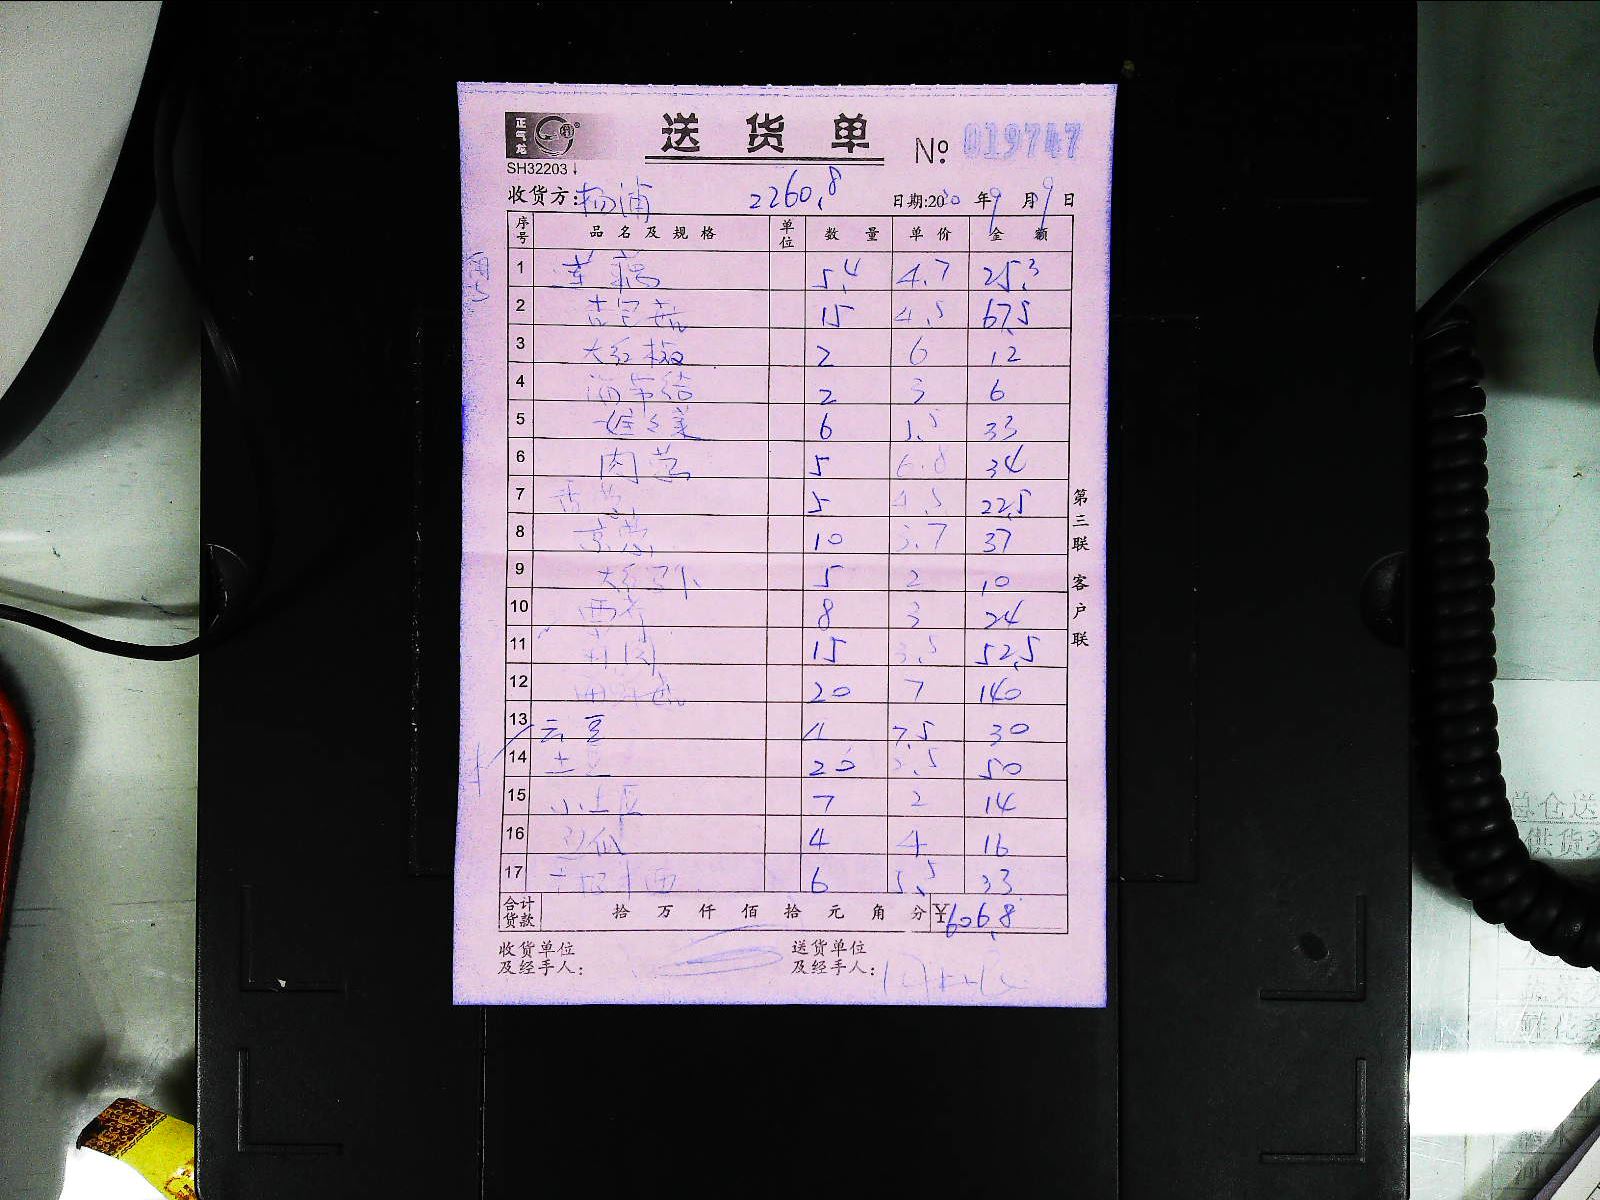 正气龙
送货单 № 019747
SH32203
收货方: 杨浦 2260.8 日期:2020年9月9日
序号 品名及规格 单位 数量 单价 金额
1 莲藕 5.4 4.7 25.3
2 杏鲍菇 15 4.5 67.5
3 大红椒 2 6 12
4 海带结 2 3 6
5 娃娃菜 6 5.5 33
6 6.8 34 5
7 香 5 4.5 22.5
8 京葱 10 3.7 37
9 大红 5 2 10
10 西芹 8 3 24
11 15 3.5 52.5
12 20 7 140
13 云豆 4 7.5 30
14 土豆 20 2.5 50
15 小土豆 7 2 14
16 4 4 16
17 6 5.5 33
合计货款 拾 万 仟 佰 拾 元 角 分 ¥606.8
收货单位及经手人: 送货单位及经手人:
第三联 客户联
总仓送
供货
蔬菜
鲜花